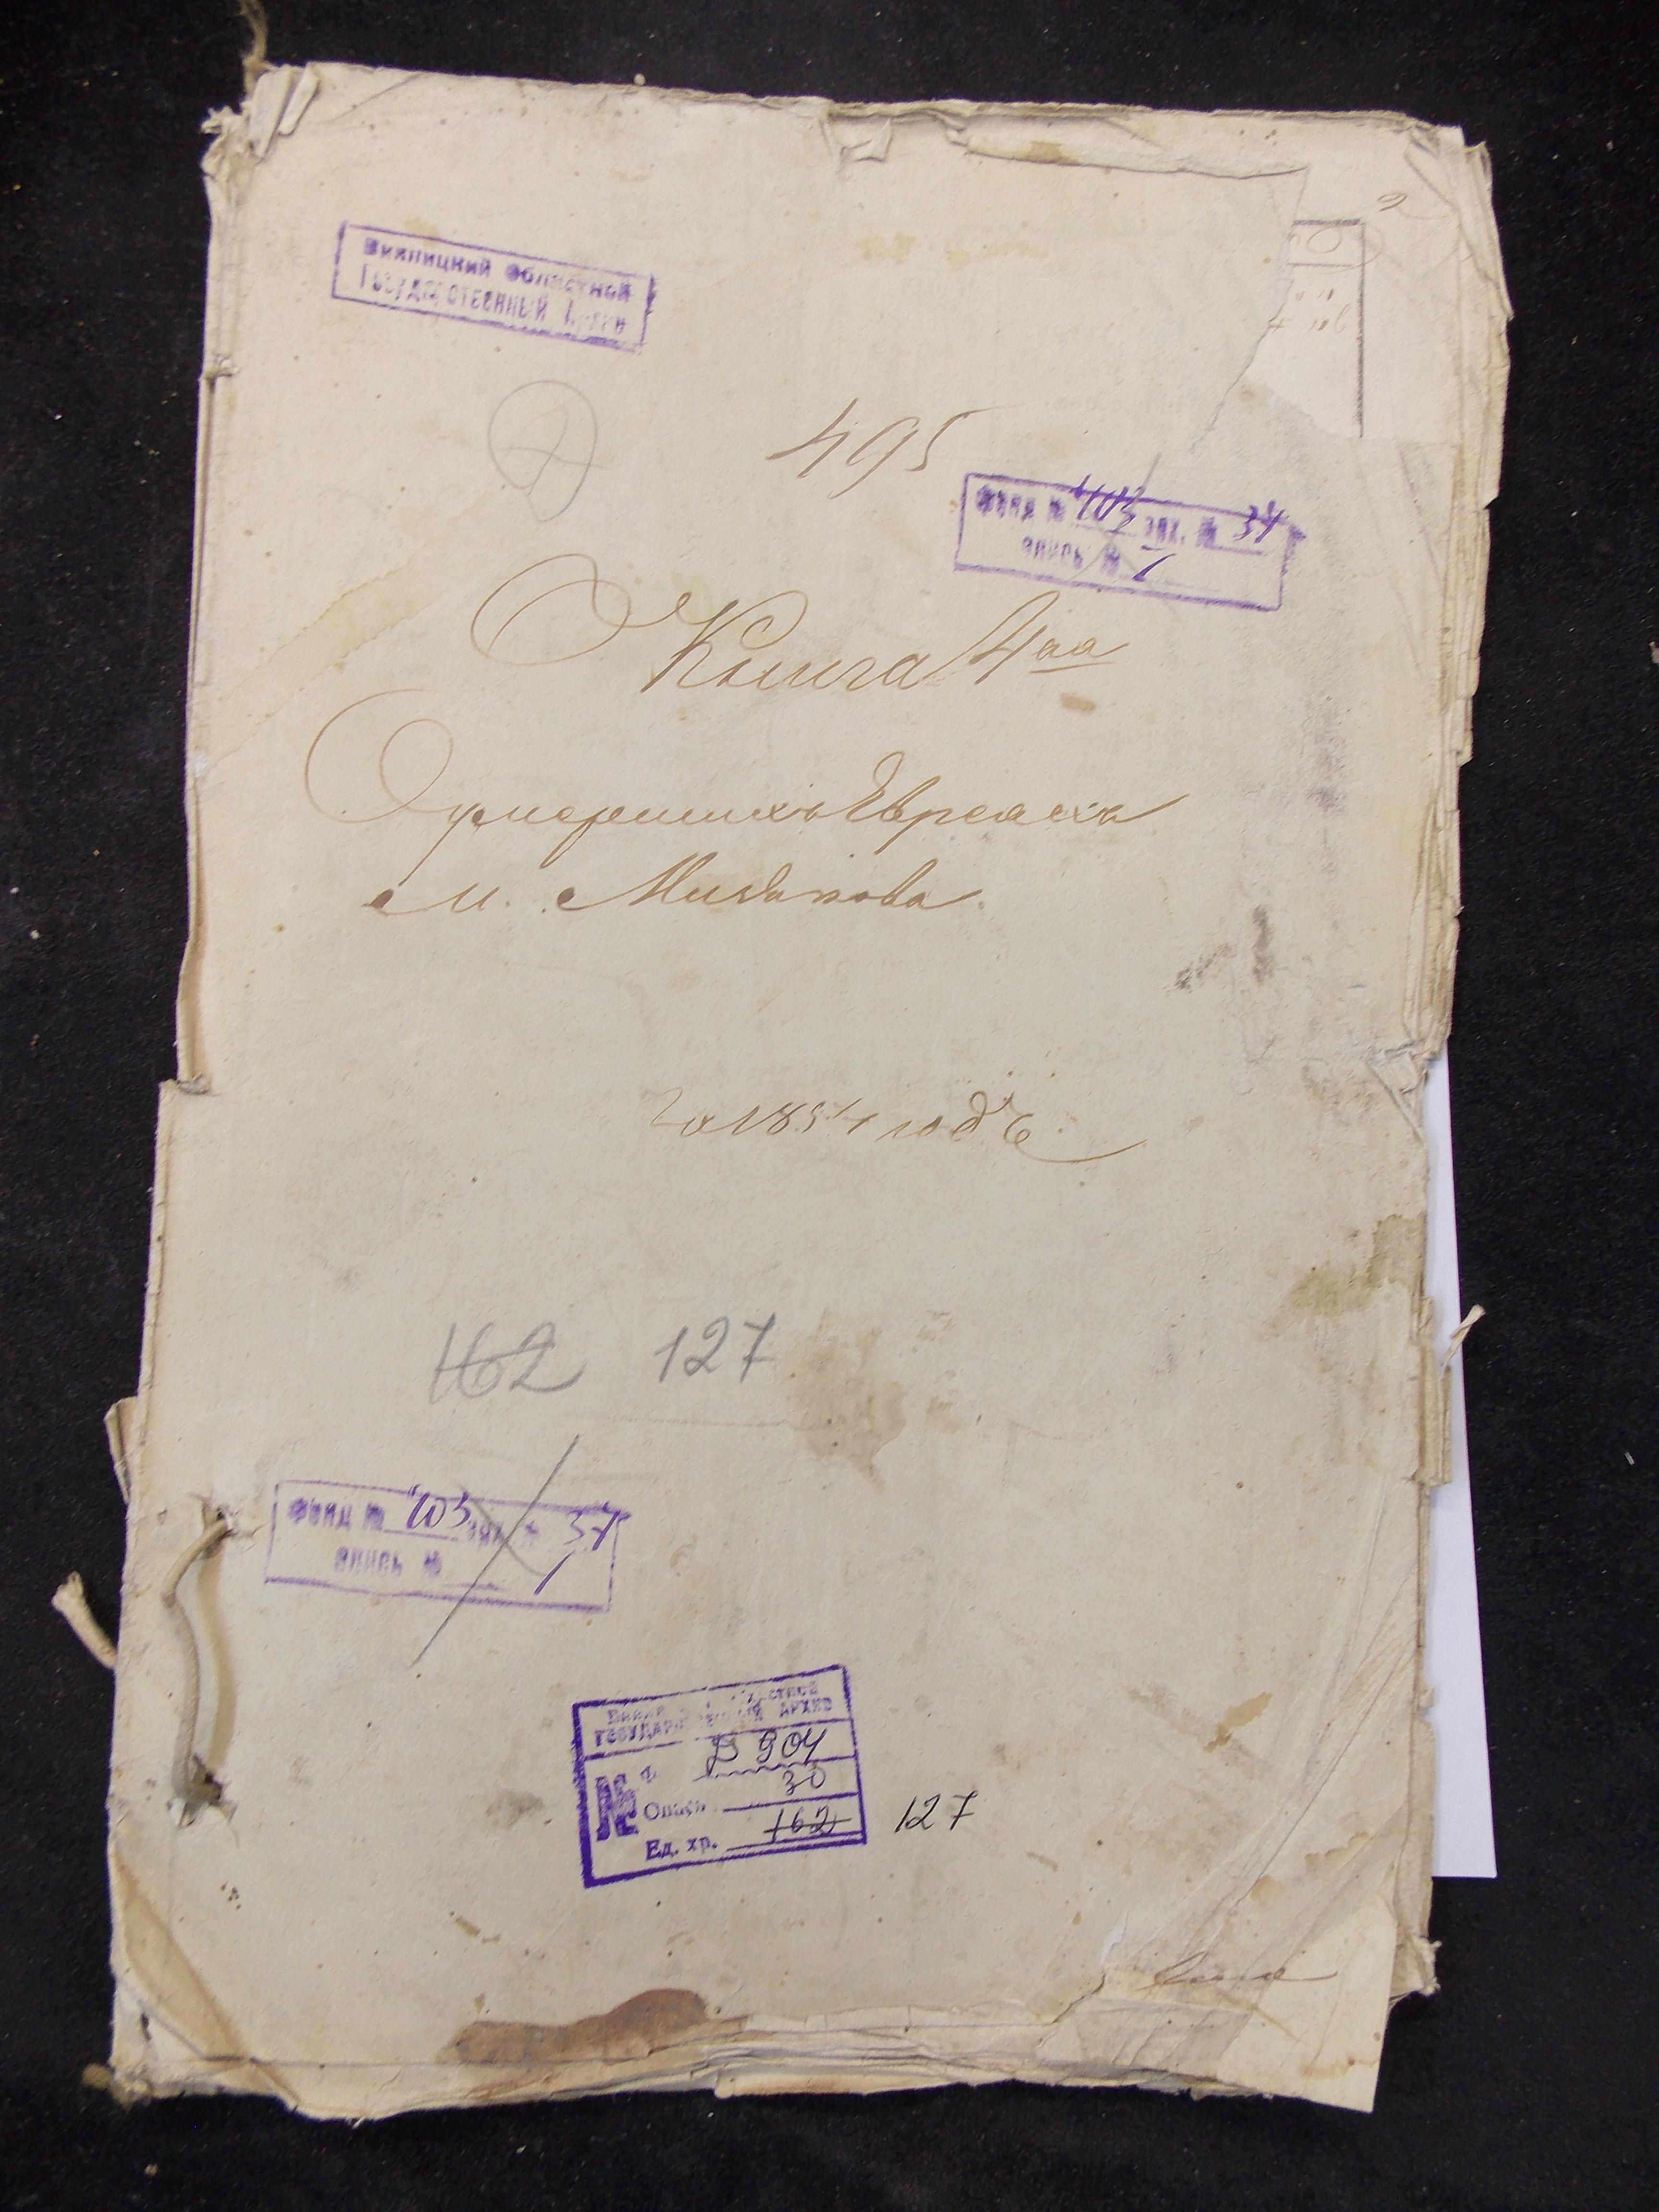 Винницкий Областной
Государственный Архив
495
Фонд № 403 арх. № 37
опись № 1
Книга 4ая
О умерших Евреяхъ
м. Миньковъ
За 1854 годъ
162 127
Фонд № 403 арх. № 37
опись № 1
Винницкий областной
ГОСУДАРСТВЕННЫЙ АРХИВ
№ Ф. Д 904
Опись 30
Ед. хр. 162 127